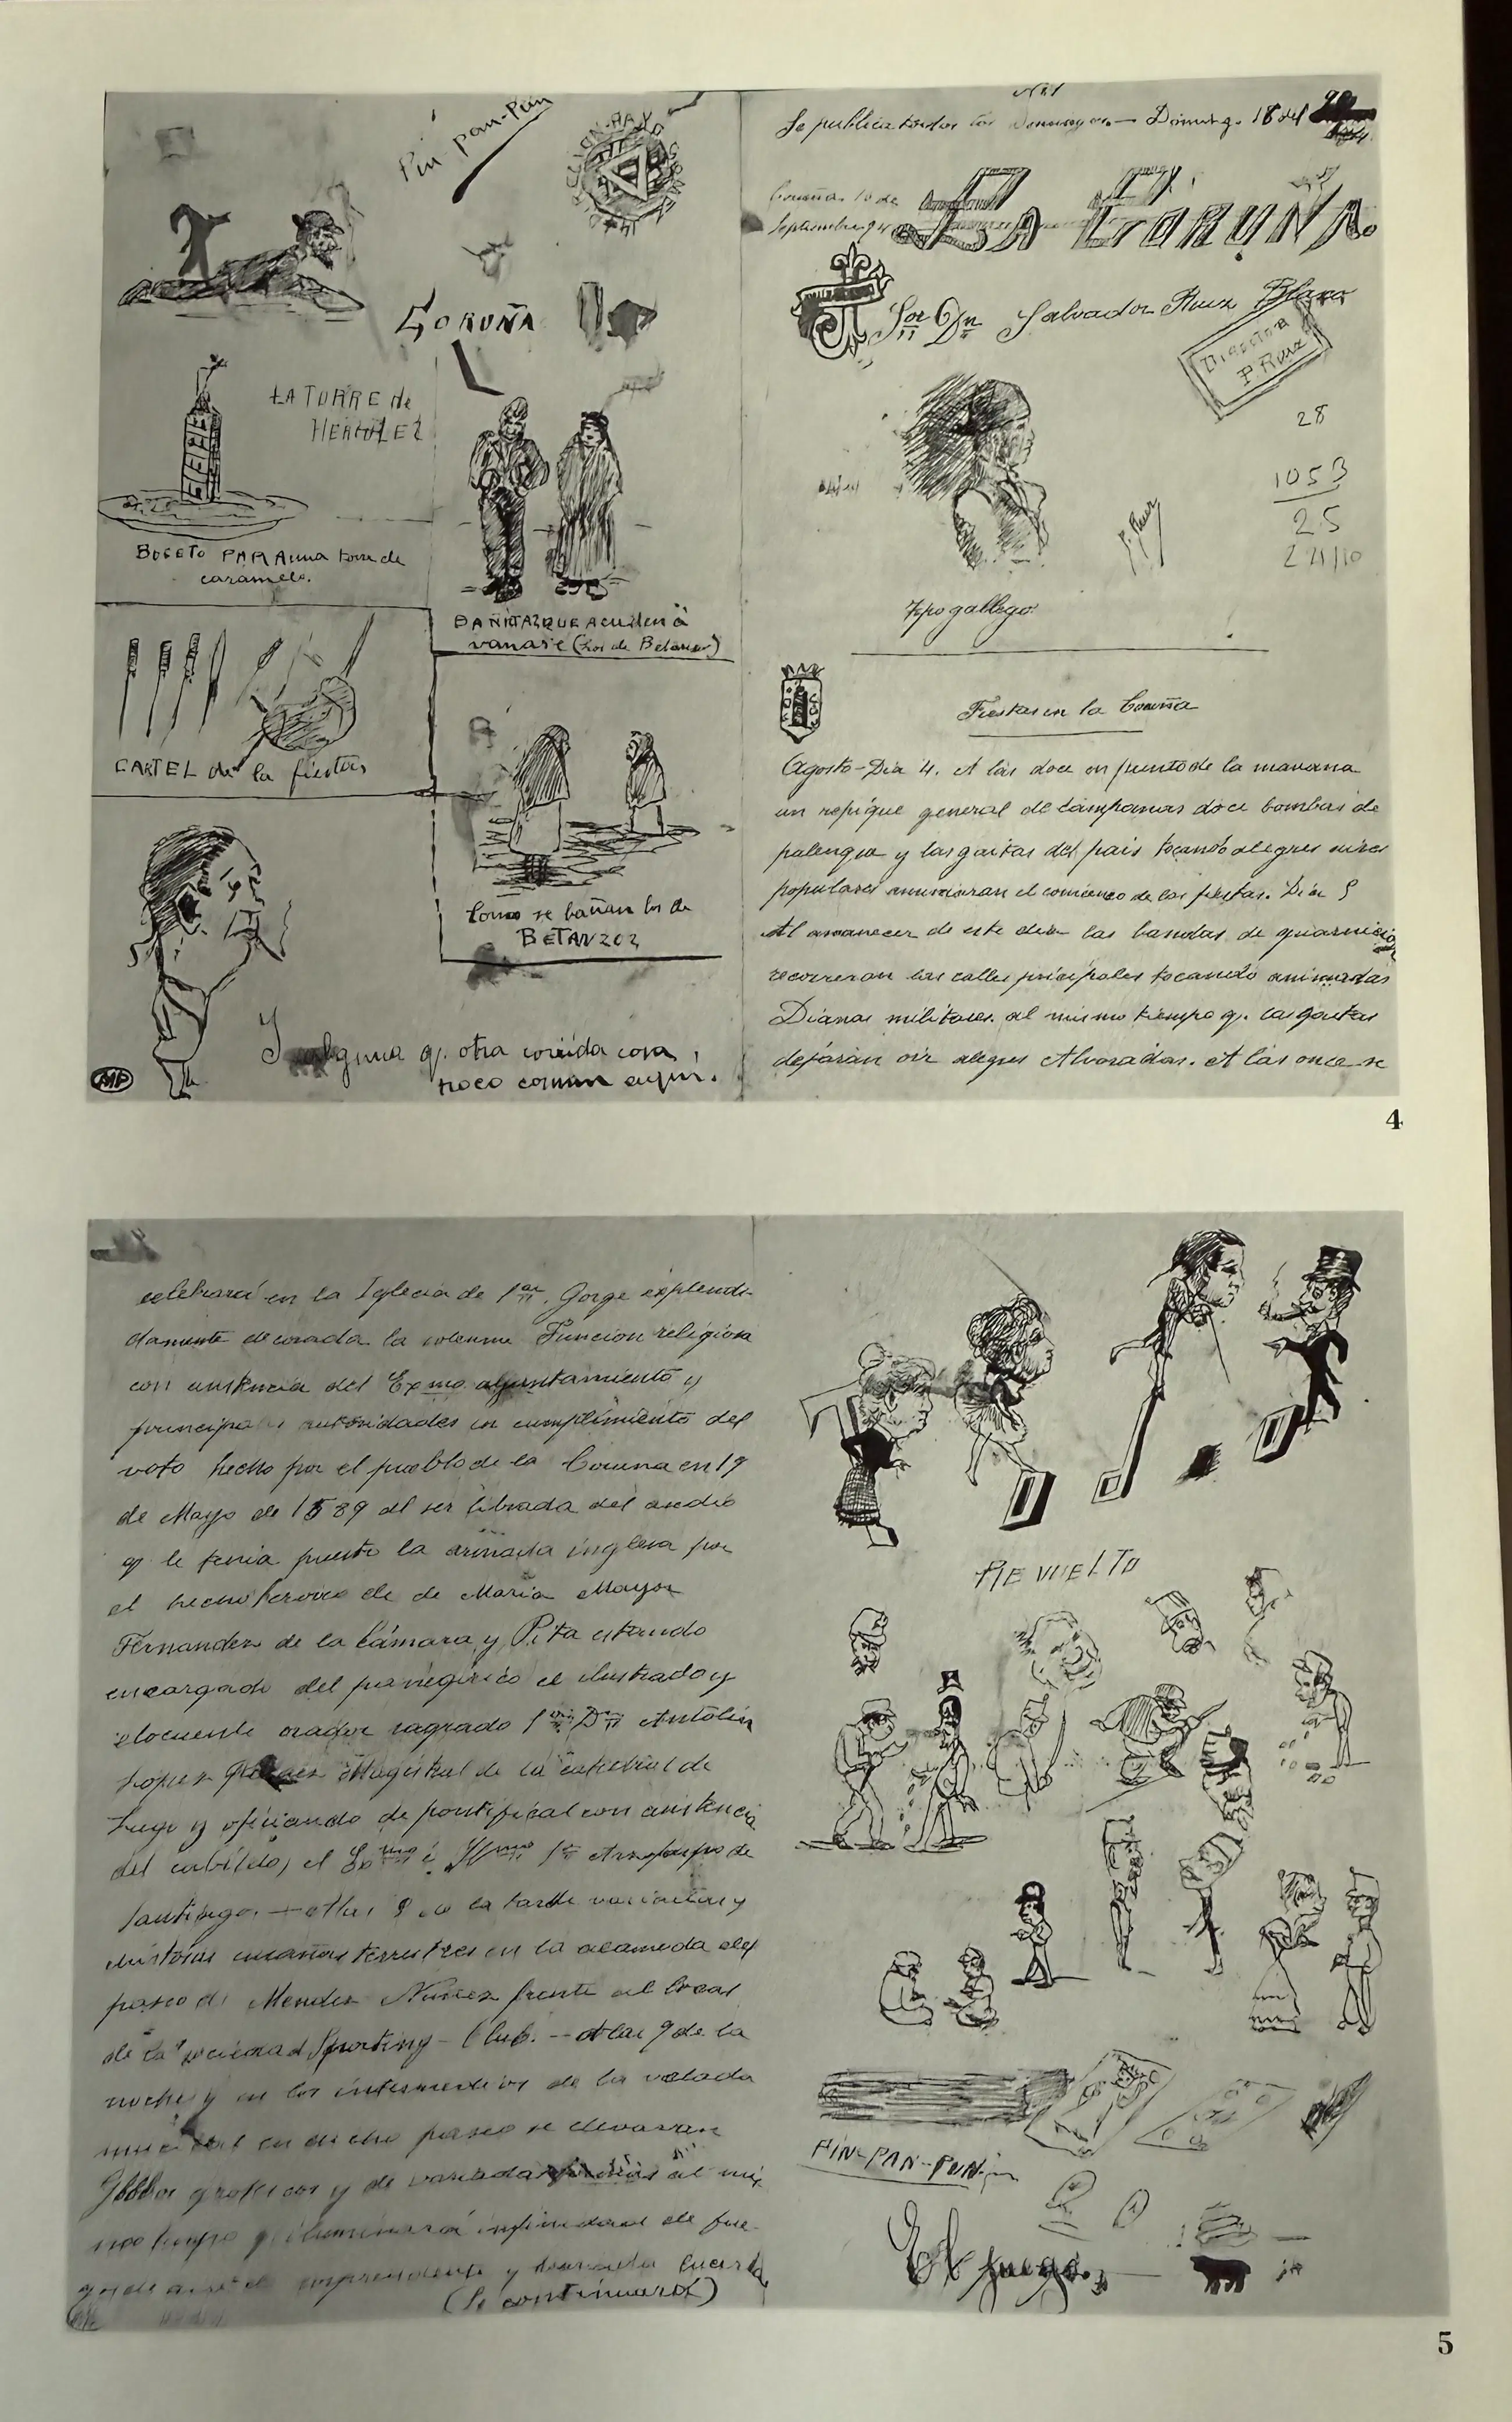 Pin-pan-Pún
CORUÑA
LA TORRE de
HERCULEZ
BOCETO PARA una torre de
caramelo.
BAÑITAZ QUE Acuden á
vanarse (los de Betanzoz)
CARTEL de la fiestas
Como se bañan los de
BETANZOZ
Y alguna q. otra corrida cosa,
poco comun aquí.
MP
Nº1
Se publica todos los Domingos. — Doming. 16 del
Coruña. 16 de
Septiembre 94
LA CORUÑA.
Sor Dn Salvador Ruiz Blasco
Director
P. Ruiz
28
1053
25
P. Ruiz
Tipo gallego
Fiestas en la Coruña
Agosto-Dia 4. A las doce en punto de la manana
un repique general de campanas doce bombas de
palenque y las gaitas del pais tocando alegres aires
populares anunciaran el comienzo de las fiestas. Dia 5
Al amanecer de este dia las bandas de guarnicion
recorreran las calles principales tocando animadas
Dianas militares. al mismo tiempo q. las gaitas
dejarán oir alegres Alvoradas. A las once se
4
celebrará en la Iglecia de San. Jorge esplendi-
damente decorada la solemne Funcion religiosa
con asistencia del Exmo ayuntamiento y
principales autoridades en cumplimiento del
voto hecho por el pueblo de la Coruna en 19
de Mayo de 1589 al ser librada del asedio
q le tenia puesto la armada inglesa por
el hecho heroico de de Maria Mayor
Fernandez de la Cámara y Pita estando
encargado del panegírico el ilustrado y
elocuente orador sagrado Sor Dn Antolin
López Magistral de la catedral de
Lugo y oficiando de pontifical con asistencia
del cabildo, el Exmo é Ilmo Sr Arzobispo de
Santiago. — A las 8 de la tarde variadas y
cucañas terrestres en la alameda del
paseo de Mendez Nuñez frente al local
de la sociedad Sporting-Club. — A las 9 de la
noche y en los intermedios de la velada
musical en dicho paseo se elevaran
Globos grotescos y de variadas al mis-
mo tiempo q iluminará infinidad de fue-
gos de sorprendente y
(Se continuará)
REVUELTO
PIN-PAN-PUN.
El juego.
5